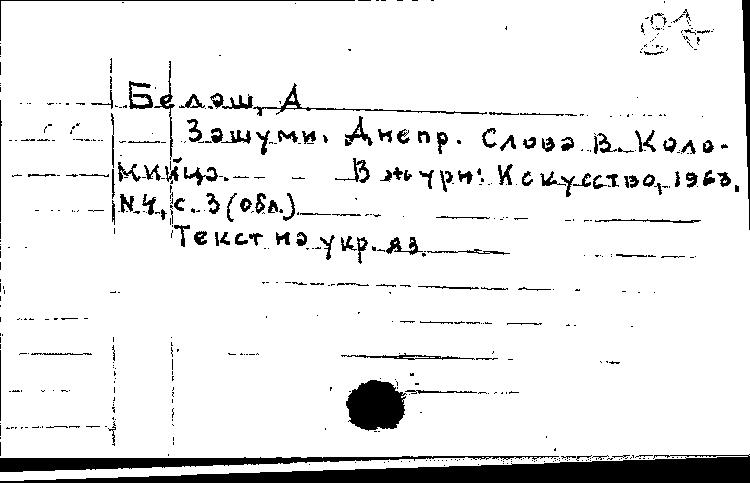 Белаш, А.
Зашуми, Днепр. Слова В. Коло-
мийца. В журн: Искусство, 1963,
N4, с. 3 (обл.)
Текст на укр. яз.